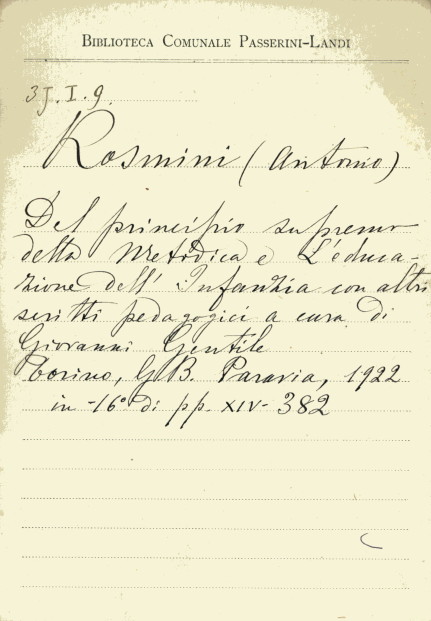 BIBLIOTECA COMUNALE PASSERINI-LANDI
3J.I.9.
Rosmini (Antonio)
Del principio supremo
della Metodica e L'educa-
zione dell' Infanzia con altri
scritti pedagogici a cura di
Giovanni Gentile
Torino, G.B. Paravia, 1922
in -16° di pp. XIV- 382